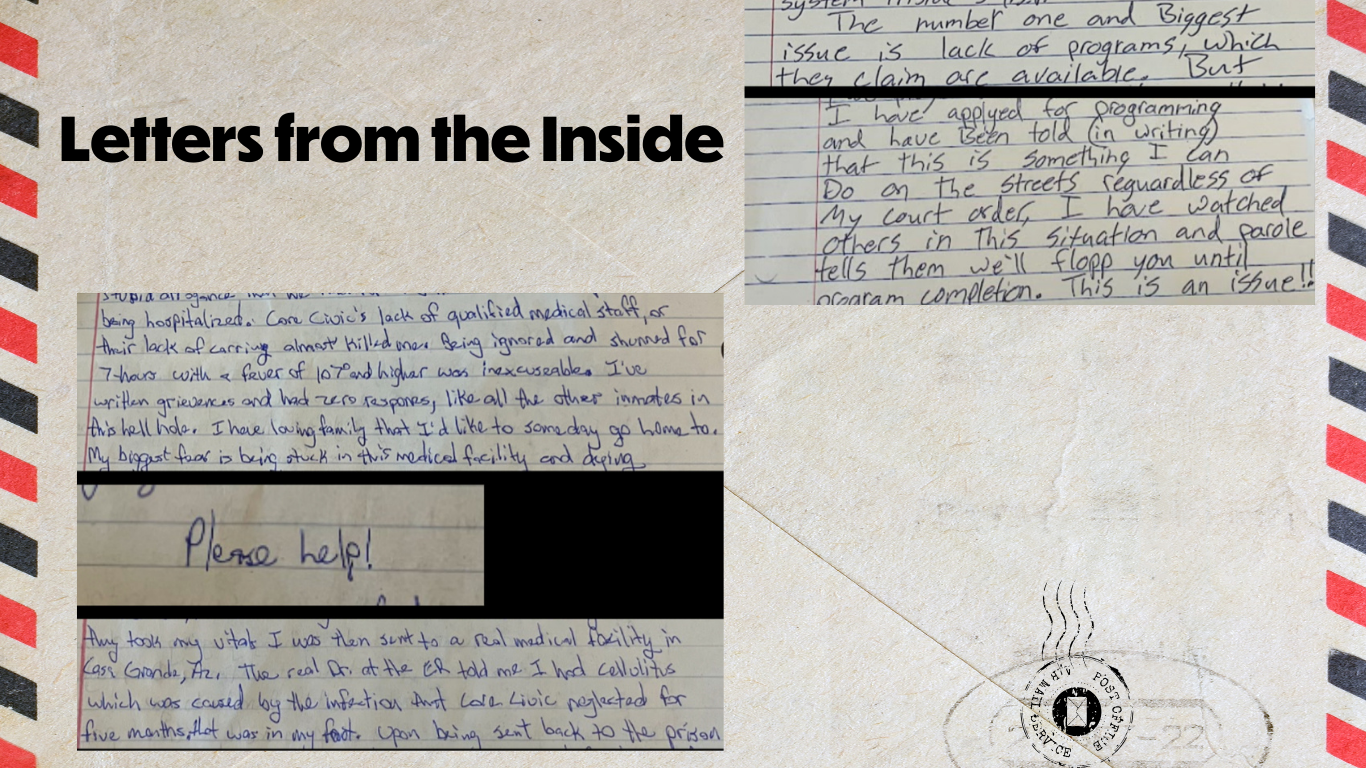 Letters from the Inside
system inside
The number one and Biggest
issue is lack of programs, which
they claim are available. But
I have applyed for programming
and have Been told (in writing)
that this is something I can
Do on the streets reguardless of
My court order, I have watched
others in This situation and parole
tells them we'll flopp you until
program completion. This is an issue!!
being hospitalized. Core Civic's lack of qualified medical staff, or
their lack of carring almost killed me. Being ignored and shunned for
7-hours with a fever of 107° and higher was inexcuseable. I've
written grievences and had zero respones, like all the other inmates in
this hell hole. I have loving family that I'd like to someday go home to.
My biggest fear is being stuck in this medical facility and dying
Please help!
They took my vitals I was then sent to a real medical facility in
Casa Grande, Az. The real Dr. at the ER told me I had cellulitis
which was caused by the infection that Core Civic neglected for
five months, that was in my foot. Upon being sent back to the prison
AIR MAIL
POST OFFICE
SERVICE
-22